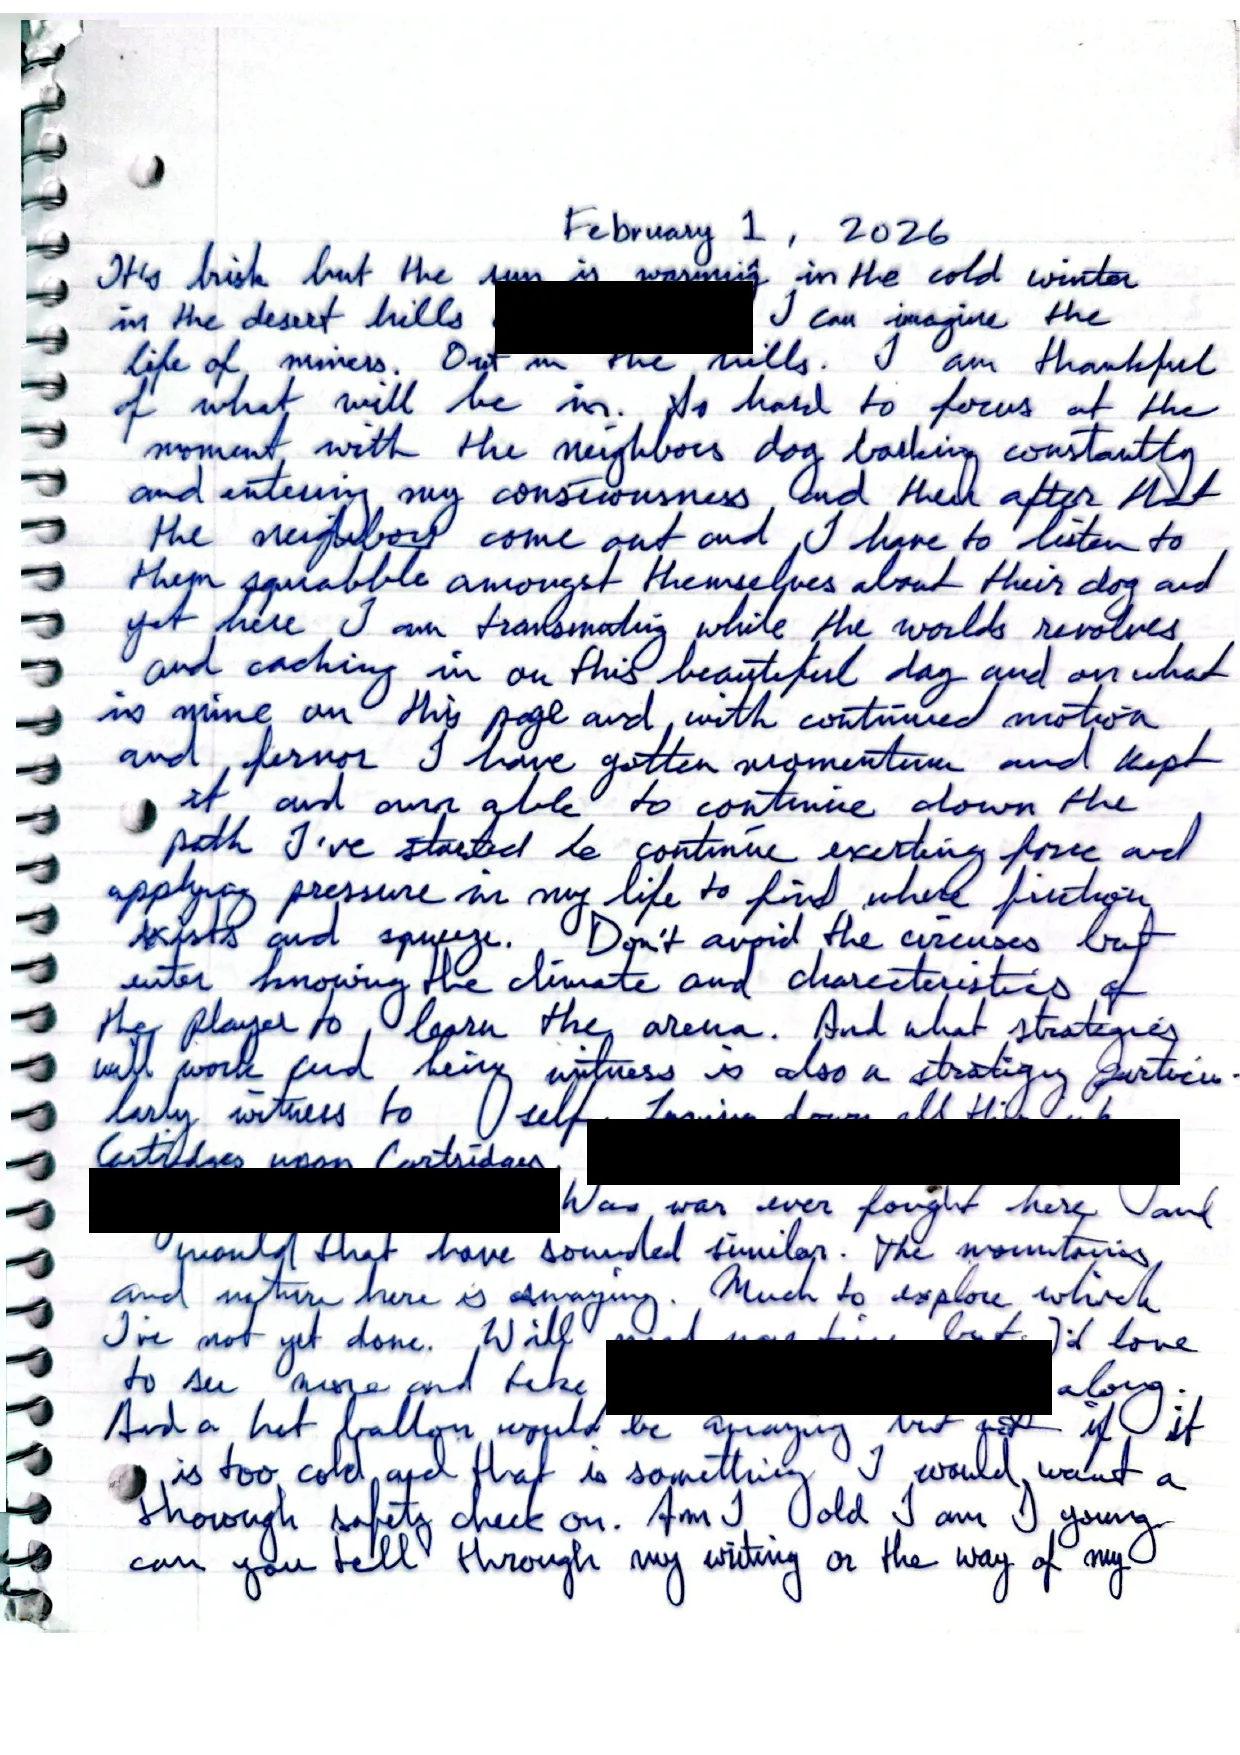 February 1, 2026
It's brisk but the sun is warming in the cold winter
in the desert hills I can imagine the
life of miners. Out in the hills. I am thankful
of what will be in. Its hard to focus at the
moment with the neighbors dog barking constantly
and entering my consciousness and then after that
the neighbors come out and I have to listen to
them squabble amongst themselves about their dog and
yet here I am transmuting while the worlds revolves
and caching in on this beautiful day and on what
is mine on this page and with continued motion
and fervor I have gotten momentum and kept
it and am able to continue down the
path I've started to continue exerting force and
applying pressure in my life to find where friction
exists and squeeze. Don't avoid the circuses but
enter knowing the climate and characteristics of
the player to learn the arena. And what strategies
will work and being witness is also a strategy particu-
larly witness to self. down all this ink
Cartridges upon Cartridges.
Was war ever fought here and
would that have sounded similar. The mountains
and nature here is amazing. Much to explore which
I've not yet done. Will need but I'd love
to see more and take along.
And a hot ballon would be amazing but not if it
is too cold and that is something I would want a
thorough safety check on. Am I old I am I young
can you tell through my writing or the way of my